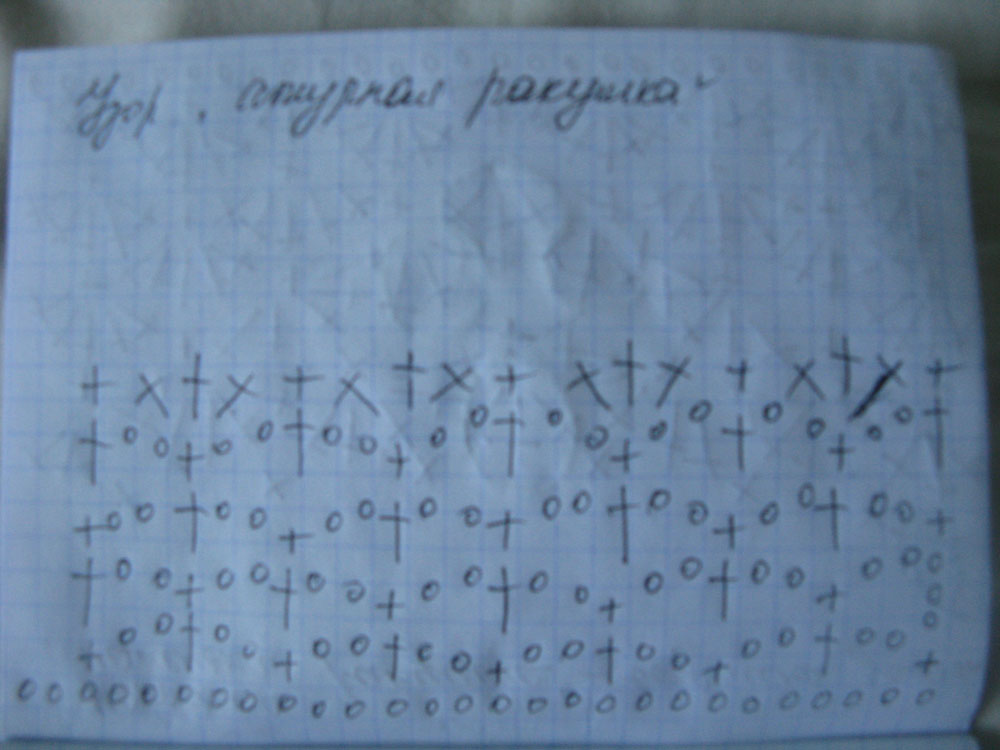 Узор „ ажурная ракушка"